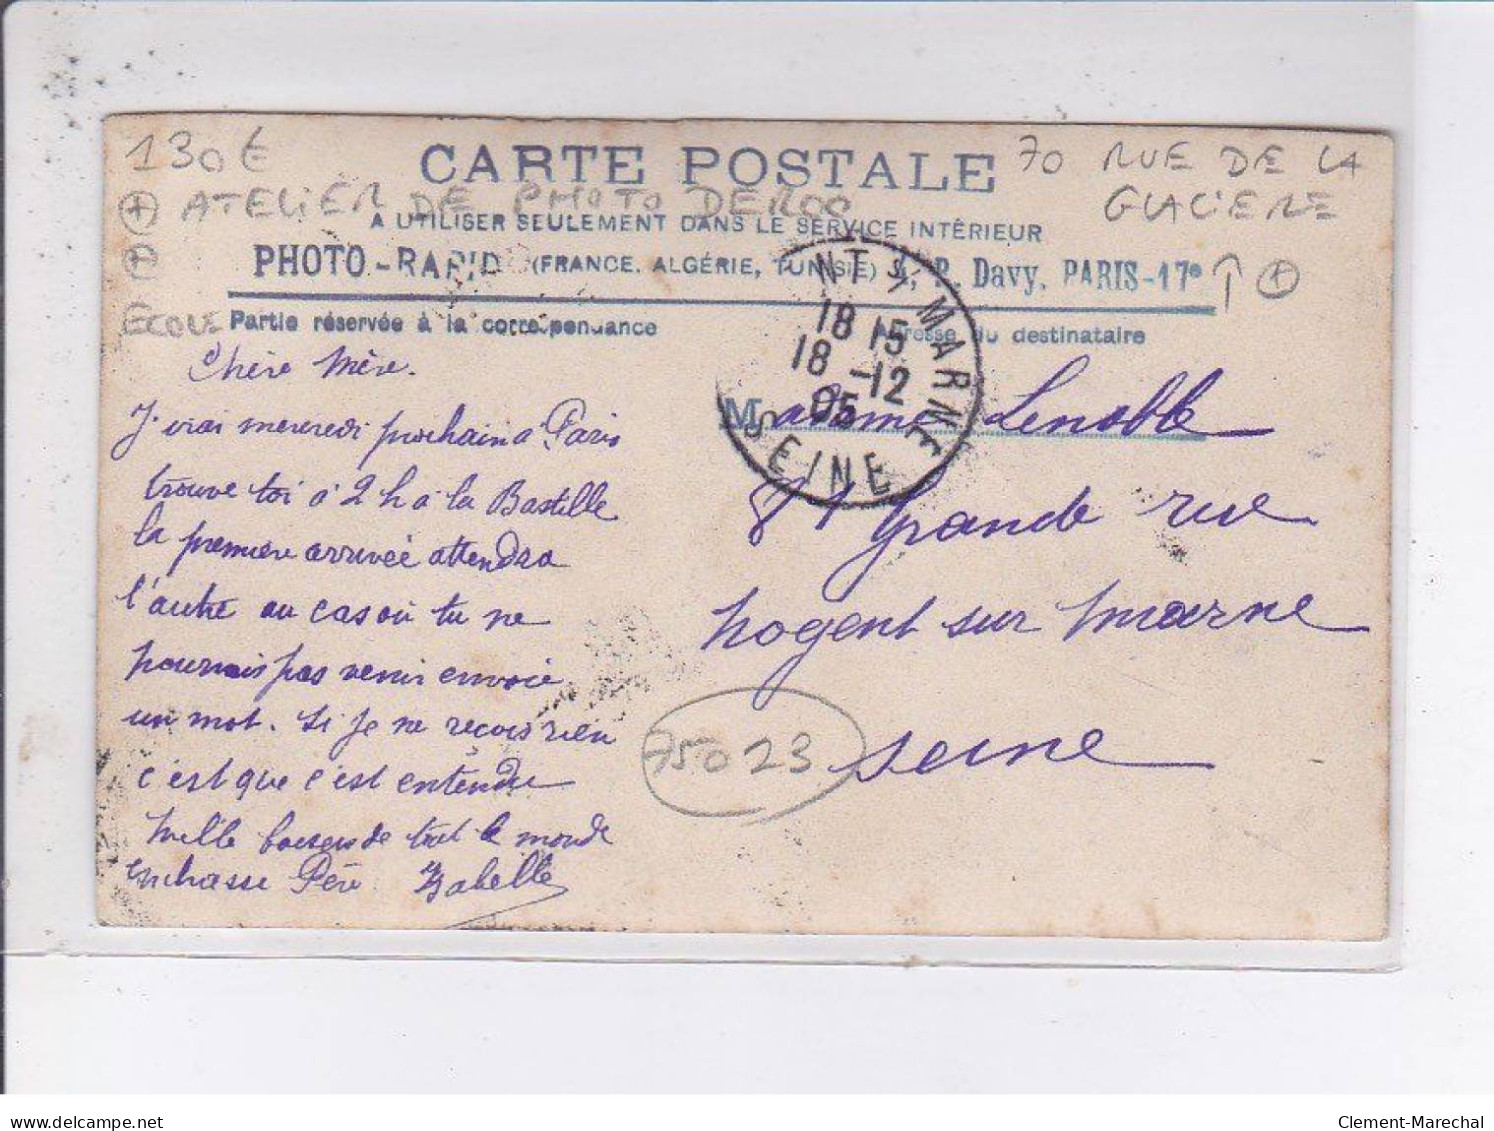 130€
CARTE POSTALE
70 RUE DE LA
GLACIERE
ATELIER DE PHOTO DEROO
A UTILISER SEULEMENT DANS LE SERVICE INTÉRIEUR
PHOTO-RAPID (FRANCE, ALGÉRIE, TUNISIE) Davy, PARIS-17e
ECOLE
Partie réservée à la correspondance
Adresse du destinataire
NT S/ MARNE
18 15
18 -12
05
SEINE
Chère Mère.
J'irai mercredi prochain a Paris
trouve toi à 2 h à la Bastille
la première arrivée attendra
l'autre au cas où tu ne
pourrais pas venir envoie
un mot. Si je ne reçois rien
c'est que c'est entendu
Mille baisers de tout le monde
embrasse Père Isabelle
Madame Lenoble
81 grande rue
Nogent sur Marne
Seine
75023
www.delcampe.net
Clement-Marechal